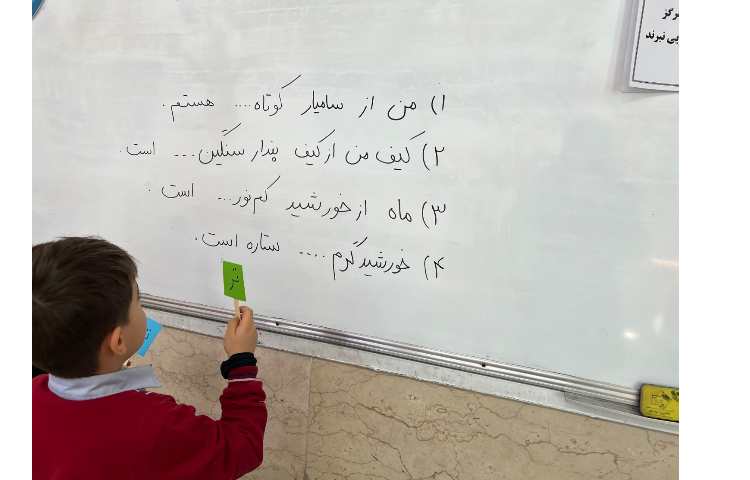 ۱) من از سامیار کوتاه.... هستم.
۲) کیف من از کیف پندار سنگین... است.
۳) ماه از خورشید کم‌نور... است.
۴) خورشید گرم.... ستاره است.
تر
رگز
یی نبرند